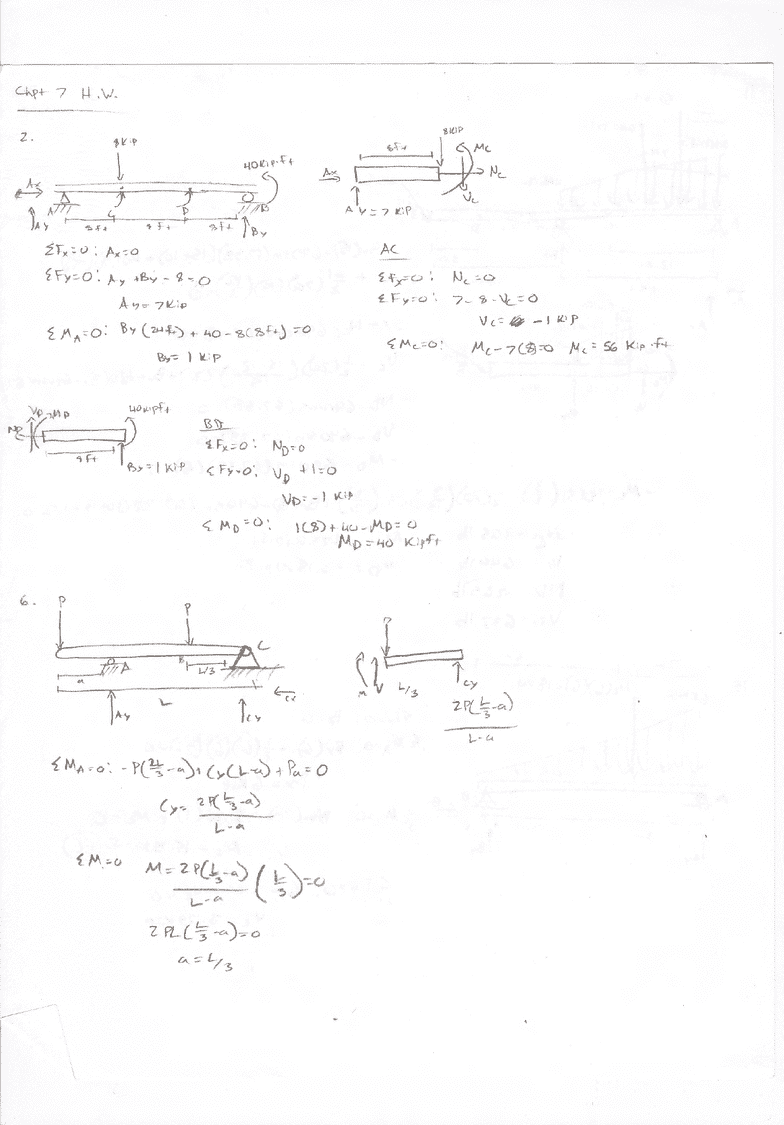 Chpt 7 H.W.
2.
8 Kip
40 Kip·ft
Ax
A
C
D
B
Ay
8ft
8ft
8ft
By
ΣFx=0: Ax=0
ΣFy=0: Ay + By - 8 = 0
Ay = 7 Kip
ΣMA=0: By(24ft) + 40 - 8(8ft) = 0
By = 1 Kip
8 KIP
8ft
Mc
Ax
Nc
Vc
Ay = 7 KIP
AC
ΣFx=0: Nc=0
ΣFy=0: 7 - 8 - Vc = 0
Vc = -1 KIP
ΣMc=0: Mc - 7(8)=0 Mc = 56 Kip·ft
VD
MD
40 Kipft
ND
8ft
By = 1 Kip
BD
ΣFx=0: ND=0
ΣFy=0: VD + 1 = 0
VD = -1 Kip
ΣMD=0: 1(8) + 40 - MD = 0
MD = 40 Kipft
6.
P
P
C
A
B
L/3
a
L
Cx
Ay
Cy
P
M
V
L/3
Cy
2P(L/3 - a)
L - a
ΣMA=0: -P(2L/3 - a) + Cy(L-a) + Pa = 0
Cy = 2P(L/3 - a)
L - a
ΣM=0 M = 2P(L/3 - a) (L/3) = 0
L - a
2PL(L/3 - a) = 0
a = L/3